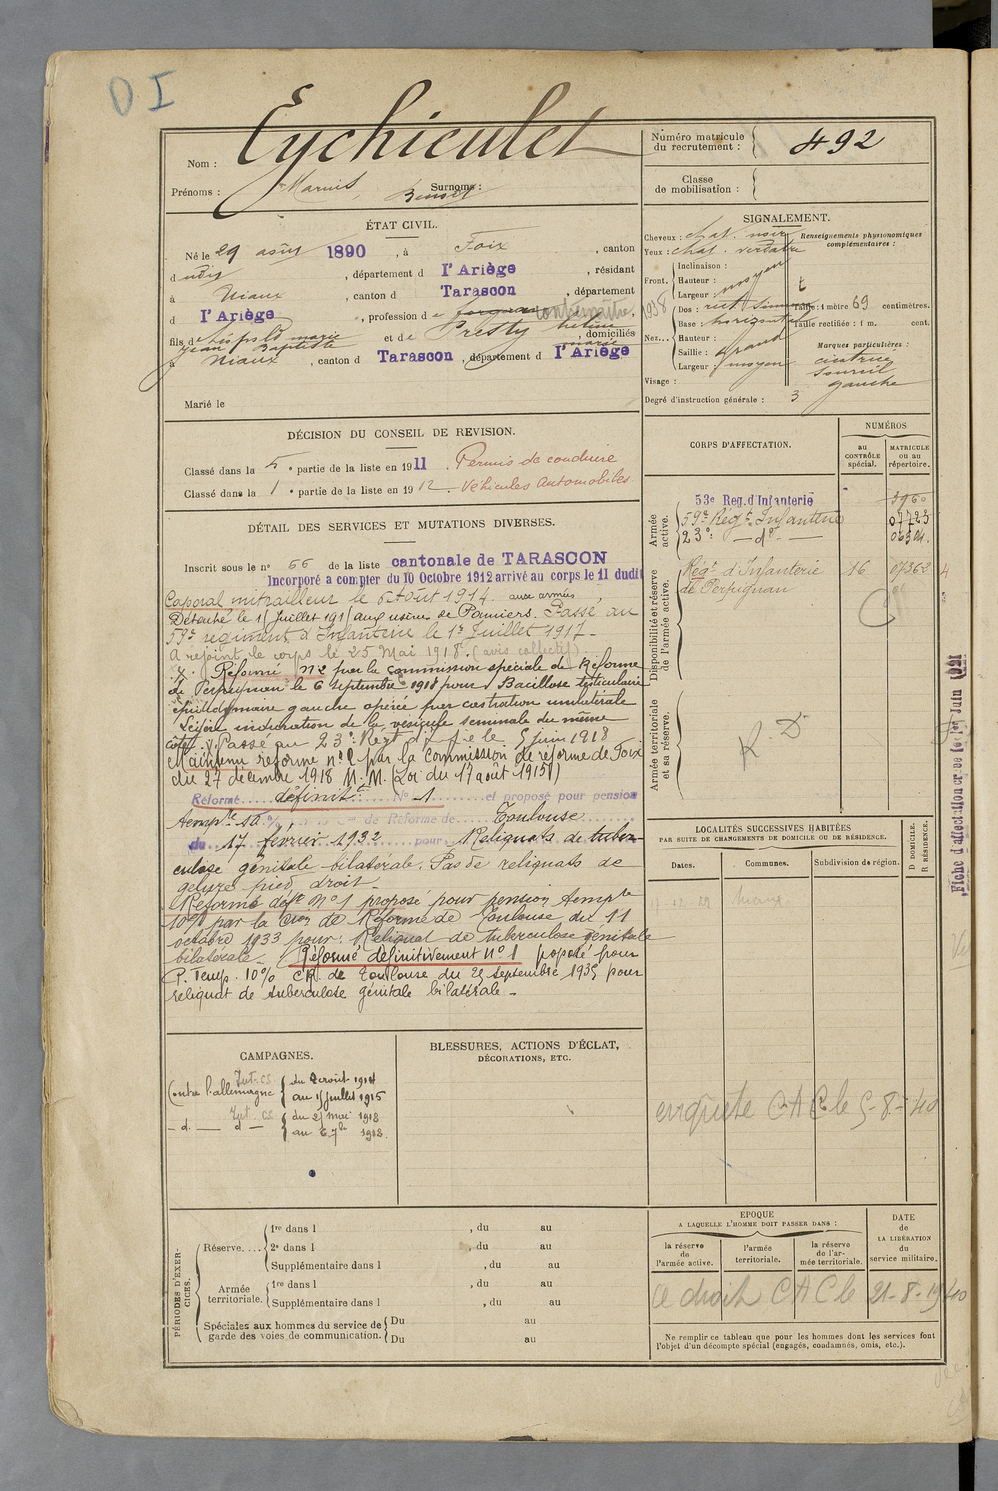 D I
Nom : Eychieulet
Prénoms : Marius, Surnoms :
Numéro matricule
du recrutement : 492
Classe
de mobilisation :
ÉTAT CIVIL.
Né le 29 août 1890, à Foix, canton
d udit, département d l'Ariège, résidant
à Niaux, canton d Tarascon, département
d l'Ariège, profession de contremaître 1938
fils de Léopold marie et de Presty hélène, domiciliés
Jean Baptiste marie
à Niaux, canton d Tarascon, département d l'Ariège
Marié le
SIGNALEMENT.
Cheveux : chat. noir
Yeux : chat. verdâtre
Renseignements physionomiques
complémentaires :
Front.
Inclinaison :
Hauteur : moyen
Largeur :
Nez...
Dos : rect. sinueux
Base : horizontal
Hauteur :
Saillie : grand
Largeur : moyen
Taille : 1 mètre 69 centimètres.
Taille rectifiée : 1 m. cent.
Marques particulières :
cicatrice
sourcil
gauche
Visage :
Degré d'instruction générale : 3
DÉCISION DU CONSEIL DE REVISION.
Classé dans la 5e partie de la liste en 1911. Permis de conduire
Classé dans la 1e partie de la liste en 1912. Véhicules Automobiles
DÉTAIL DES SERVICES ET MUTATIONS DIVERSES.
Inscrit sous le n° 66 de la liste cantonale de TARASCON
Incorporé a compter du 10 Octobre 1912 arrivé au corps le 11 dudit
Caporal mitrailleur le 6 Août 1914. aux armées
Détaché le 15 Juillet 1915 aux usines de Pamiers. Passé au
59e régiment d'Infanterie le 1er Juillet 1917 -
A rejoint le corps le 25 Mai 1918. (avis collectif)
Réformé N°2 par la commission spéciale de Réforme
de Perpignan le 6 septembre 1918 pour Bacillose testiculaire
épididymaire gauche opérée par castration unilatérale
Légère induration de la vésicule séminale du même
côté. Passé au 23e Régt d'Inf le 5 juin 1918
Maintenu réformé n° 2 par la Commission de réforme de Foix
du 27 décembre 1918 M.M. (Loi du 17 août 1915)
Réformé définitt N° 1 et proposé pour pension
tempre 10% de Réforme de Toulouse
du 17 février 1932 pour Reliquats de tuber-
culose génitale bilatérale. Pas de reliquats de
gelure pied droit -
Réformé déft N° 1 proposé pour pension tempre
10% par la Cion de Réforme de Toulouse du 11
octobre 1933 pour : Reliquat de tuberculose génitale
bilatérale - Réformé définitivement n° 1 proposé pour
P. Temp. 10% CR de Toulouse du 25 septembre 1935 pour
reliquat de tuberculose génitale bilatérale -
CORPS D'AFFECTATION.
NUMÉROS
au
CONTRÔLE
spécial.
MATRICULE
ou au
répertoire.
Armée
active.
53e Reg. d'Infanterie 3960
59e Régt Infanterie 07723
23e - do -
Disponibilité et réserve
de l'armée active.
Régt d'Infanterie 16 07362
de Perpignan
Armée territoriale
et sa réserve.
R. D
Fiche d'affectation créée le 1er Juin 1921
LOCALITÉS SUCCESSIVES HABITÉES
PAR SUITE DE CHANGEMENTS DE DOMICILE OU DE RÉSIDENCE.
Dates.
Communes.
Subdivision de région.
D DOMICILE.
R RÉSIDENCE.
Niaux
enquête C A C le 5-8-40
CAMPAGNES.
Contre l'allemagne Int. CS du 2 août 1914
au 15 juillet 1915
- d. - Int. CS d - du 25 mai 1918
au 6 7bre 1918.
BLESSURES, ACTIONS D'ÉCLAT,
DÉCORATIONS, ETC.
PÉRIODES D'EXER-
CICES.
Réserve....
1re dans l , du au
2e dans l , du au
Supplémentaire dans l , du au
Armée
territoriale.
1re dans l , du au
Supplémentaire dans l , du au
Spéciales aux hommes du service de
garde des voies de communication.
Du au
Du au
EPOQUE
A LAQUELLE L'HOMME DOIT PASSER DANS :
la réserve
de
l'armée active.
l'armée
territoriale.
la réserve
de l'ar-
mée territoriale.
DATE
de
LA LIBÉRATION
du
service militaire.
a droit C A C le 21-8-1940
Ne remplir ce tableau que pour les hommes dont les services font
l'objet d'un décompte spécial (engagés, condamnés, omis, etc.).